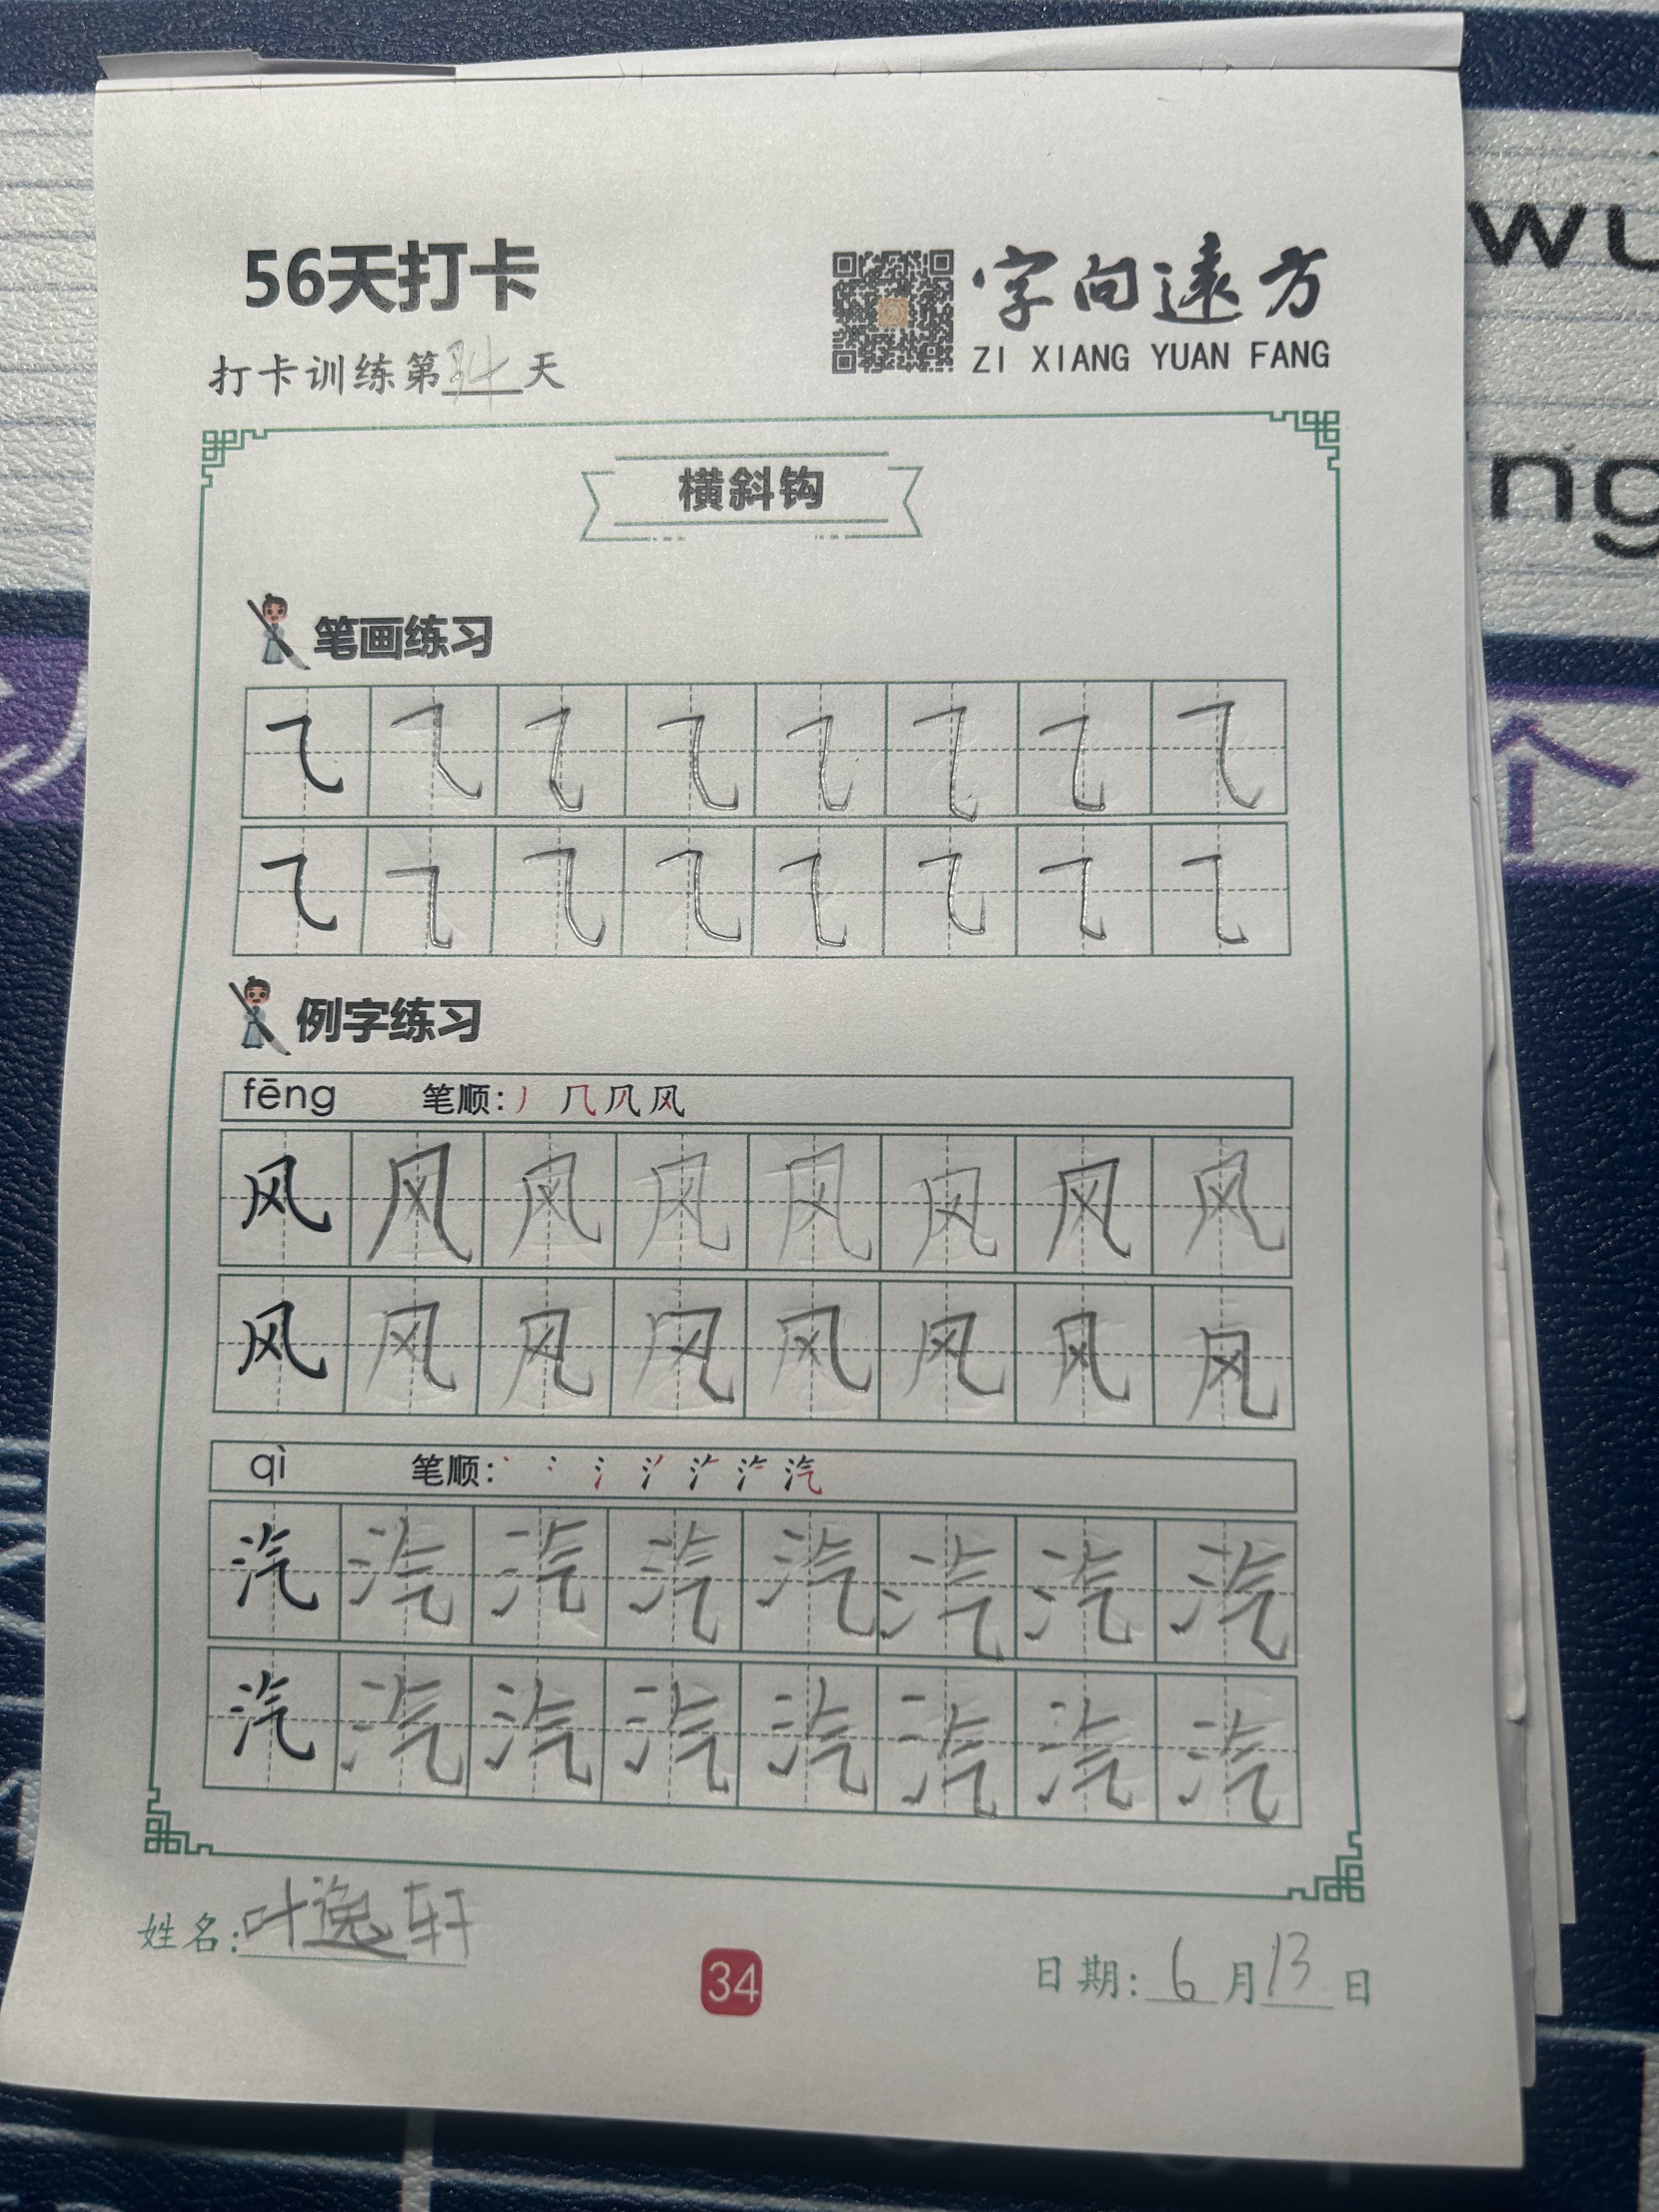 56天打卡
字向遠方
ZI XIANG YUAN FANG
打卡训练第34天
横斜钩
笔画练习
㇈ ㇈ ㇈ ㇈ ㇈ ㇈ ㇈ ㇈
㇈ ㇈ ㇈ ㇈ ㇈ ㇈ ㇈ ㇈
例字练习
fēng 笔顺: 丿 ⺇ 风
风 风 风 风 风 风 风 风
风 风 风 风 风 风 风 风
qì 笔顺: 丶 冫 氵 汽
汽 汽 汽 汽 汽 汽 汽 汽
汽 汽 汽 汽 汽 汽 汽 汽
姓名: 叶逸轩
34
日期: 6月13日
wu
ng
个